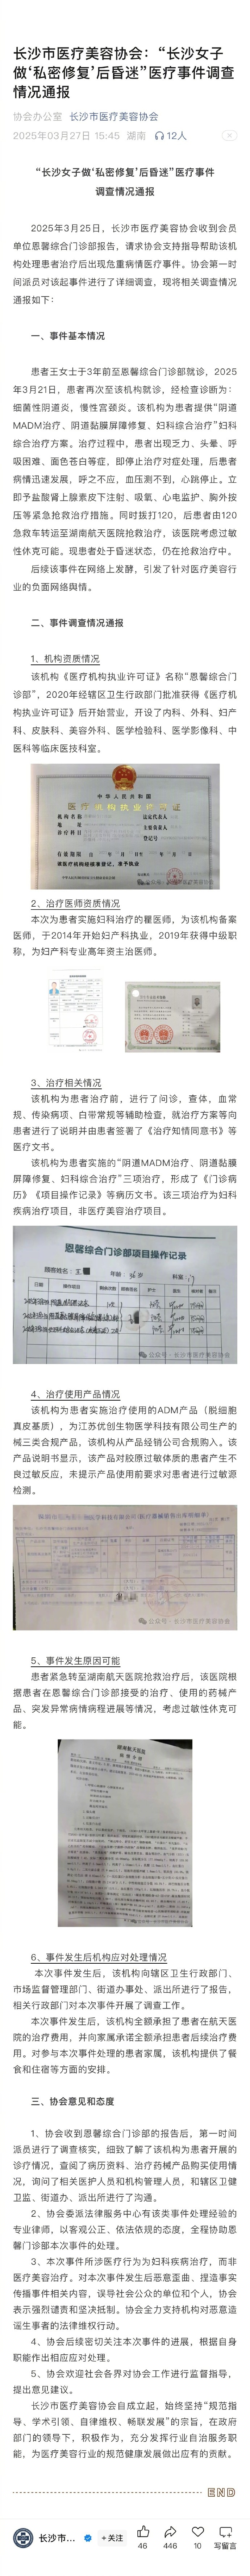 长沙市医疗美容协会：“长沙女子
做‘私密修复’后昏迷”医疗事件调查
情况通报
协会办公室 长沙市医疗美容协会
2025年03月27日 15:45 湖南 12人
“长沙女子做‘私密修复’后昏迷”医疗事件
调查情况通报
2025年3月25日，长沙市医疗美容协会收到会员
单位恩馨综合门诊部报告，请求协会支持指导帮助该机
构处理患者治疗后出现危重病情医疗事件。协会第一时
间派员对该起事件进行了详细调查，现将相关调查情况
通报如下：
一、事件基本情况
患者王女士于3年前至恩馨综合门诊部就诊，2025
年3月21日，患者再次至该机构就诊，经检查诊断为：
细菌性阴道炎，慢性宫颈炎。该机构为患者提供“阴道
MADM治疗、阴道黏膜屏障修复、妇科综合治疗”妇科
综合治疗方案。治疗过程中，患者出现乏力、头晕、呼
吸困难、面色苍白等症，即停止治疗对症处理，后患者
病情迅速发展，呼之不应，血压测不到，心跳停止。立
即予盐酸肾上腺素皮下注射、吸氧、心电监护、胸外按
压等紧急抢救治疗措施。同时拨打120，后患者由120
急救车转运至湖南航天医院抢救治疗，该医院考虑过敏
性休克可能。现患者处于昏迷状态，仍在抢救治疗中。
后续该事件在网络上发酵，引发了针对医疗美容行
业的负面网络舆情。
二、事件调查情况通报
1、机构资质情况
该机构《医疗机构执业许可证》名称“恩馨综合门
诊部”，2020年经辖区卫生行政部门批准获得《医疗机
构执业许可证》后开始营业，开设了内科、外科、妇产
科、皮肤科、美容外科、医学检验科、医学影像科、中
医科等临床医技科室。
中华人民共和国
医疗机构执业许可证
2、治疗医师资质情况
本次为患者实施妇科治疗的瞿医师，为该机构备案
医师，于2014年开始妇产科执业，2019年获得中级职
称，为妇产科专业高年资主治医师。
3、治疗相关情况
该机构为患者治疗前，进行了问诊，查体，血常
规、传染病项、白带常规等辅助检查，就治疗方案等向
患者进行了说明并由患者签署了《治疗知情同意书》等
医疗文书。
该机构为患者实施的“阴道MADM治疗、阴道黏膜
屏障修复、妇科综合治疗”三项治疗，形成了《门诊病
历》《项目操作记录》等病历文书。该三项治疗为妇科
疾病治疗项目，非医疗美容治疗项目。
恩馨综合门诊部项目操作记录
公众号·长沙市医疗美容协会
4、治疗使用产品情况
该机构为患者实施治疗使用的ADM产品（脱细胞
真皮基质），为江苏优创生物医学科技有限公司生产的
械三类合规产品，该机构从产品经销机公司合规购入。该
产品说明书显示，该产品对胶原过敏体质的患者产生不
良过敏反应，未提示产品使用前要求对患者进行过敏源
检测。
公众号·长沙市医疗美容协会
5、事件发生原因可能
患者紧急转至湖南航天医院抢救治疗后，该医院根
据患者在恩馨综合门诊部接受的治疗、使用的药械产
品、突发异常病情病程进展等情况，考虑过敏性休克可
能。
湖南航天医院
6、事件发生后机构应对处理情况
本次事件发生后，该机构向辖区卫生行政部门、
市场监督管理部门、街道办事处、派出所进行了报告，
相关行政部门对本次事件开展了调查工作。
本次事件发生后，该机构全额承担了患者在航天医
院的治疗费用，并向家属承诺全额承担患者后续治疗费
用。对参与本次事件处理的患者家属，该机构提供了餐
食和住宿等方面的安排。
三、协会意见和态度
1、协会收到恩馨综合门诊部的报告后，第一时间
派员进行了调查核实，细致了解了该机构为患者开展的
诊疗情况，查阅了病历资料、治疗药械产品购买使用情
况，询问了相关医护人员和机构管理人员，和辖区卫健
卫监、街道办、派出所进行了沟通。
2、协会委派法律服务中心有该类事件处理经验的
专业律师，以客观公正、依法依规的态度，全程协助恩
馨门诊部本次事件的处理。
3、本次事件所涉医疗行为为妇科疾病治疗，而非
医疗美容治疗。对本次事件发生后恶意歪曲、捏造事实
传播事件相关内容，误导社会公众的单位和个人，协会
表示强烈谴责和坚决抵制。协会全力支持机构对恶意造
谣生事者的法律维权行动。
4、协会后续密切关注本次事件的进展，根据自身
职能作出相应应对处理。
5、协会欢迎社会各界对协会工作进行监督指导，
提出意见建议。
长沙市医疗美容协会自成立起，始终坚持“规范指
导、学术引领、自律维权、畅联发展”的宗旨，在政府
部门的领导下，积极作为，充分发挥行业自治服务职
能，为医疗美容行业的规范健康发展做出应有的贡献。
END
长沙市... +关注 46 446 10 写留言